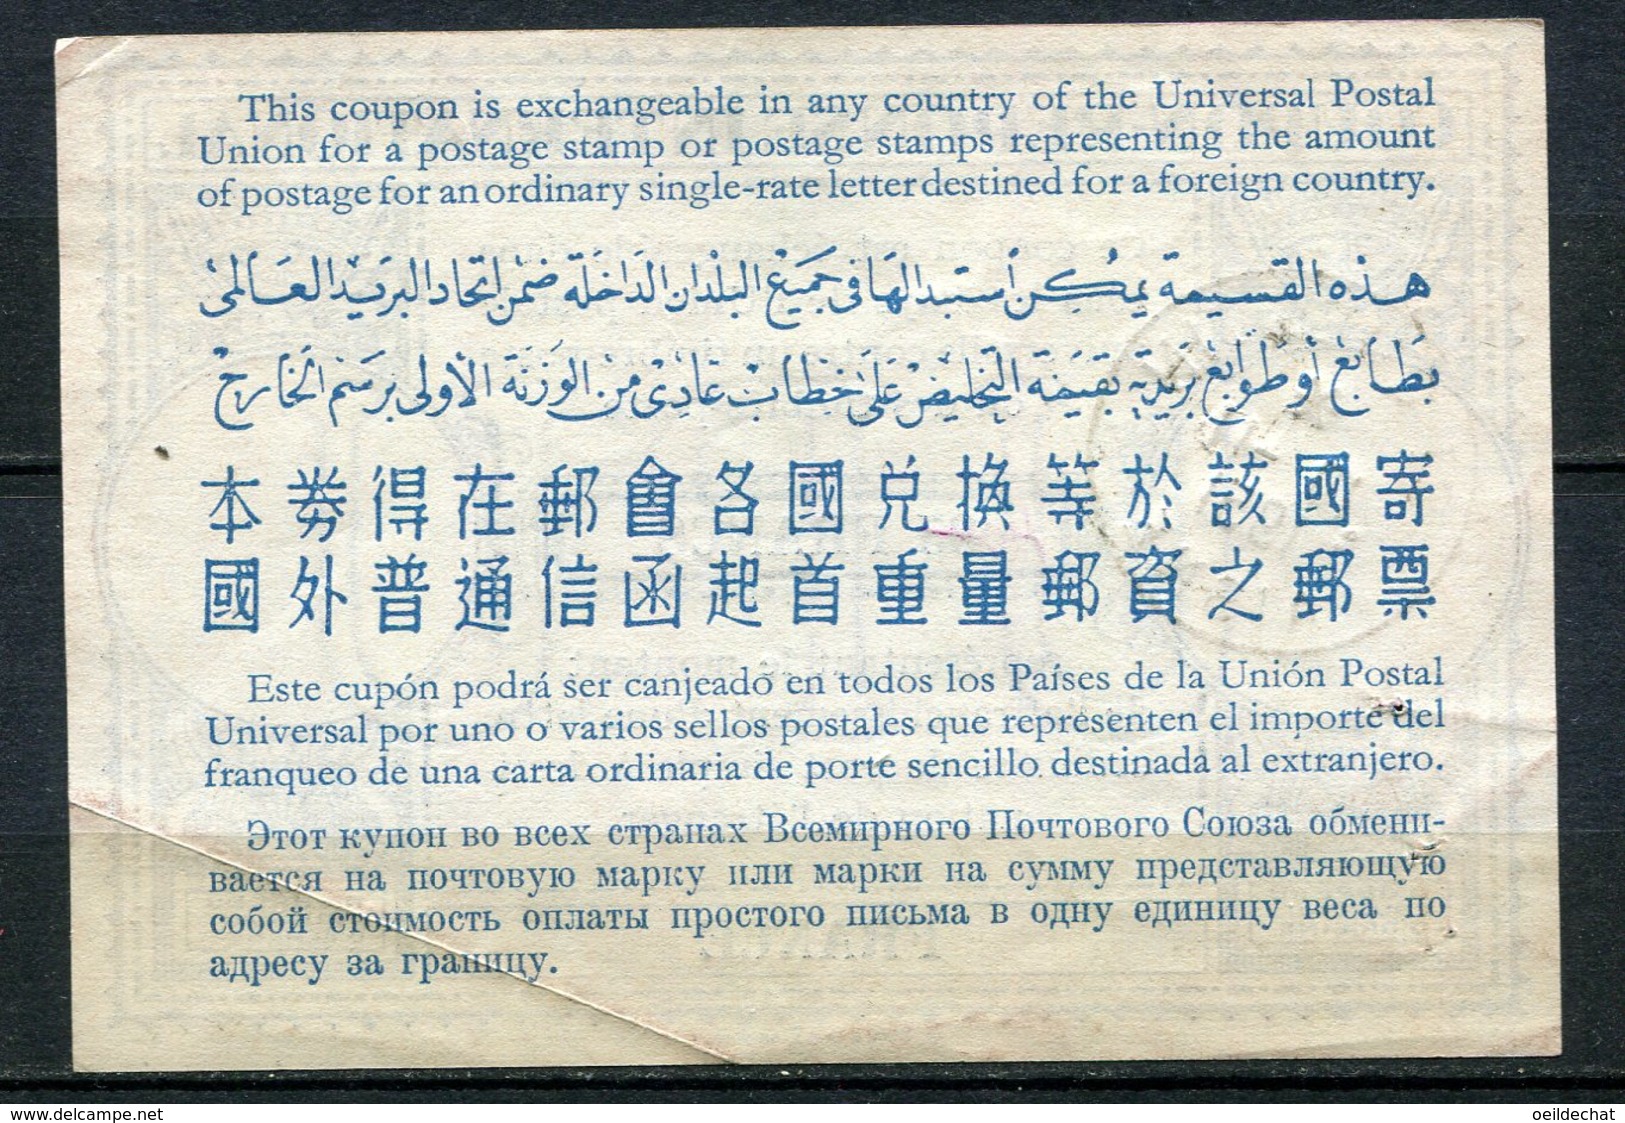 This coupon is exchangeable in any country of the Universal Postal
Union for a postage stamp or postage stamps representing the amount
of postage for an ordinary single-rate letter destined for a foreign country.
هذه القسيمة يمكن استبدالها في جميع البلدان الداخلة ضمن اتحاد البريد العالمى
بطابع أو طوابع بريدية بقيمة التخليص على خطاب عادى من الوزنة الأولى برسم الخارج
本券得在郵會各國兌換等於該國寄
國外普通信函起首重量郵資之郵票
Este cupón podrá ser canjeado en todos los Países de la Unión Postal
Universal por uno o varios sellos postales que representen el importe del
franqueo de una carta ordinaria de porte sencillo destinada al extranjero.
Этот купон во всех странах Всемирного Почтового Союза обмени-
вается на почтовую марку или марки на сумму представляющую
собой стоимость оплаты простого письма в одну единицу веса по
адресу за границу.
www.delcampe.net
oeildechat